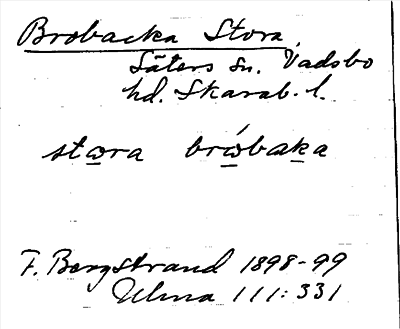 Brobacka Stora,
Säters sn. Vadsbo
hd. Skarab. l.
stωra brώbaka
F. Bergstrand 1898-99
Ulma 111:331